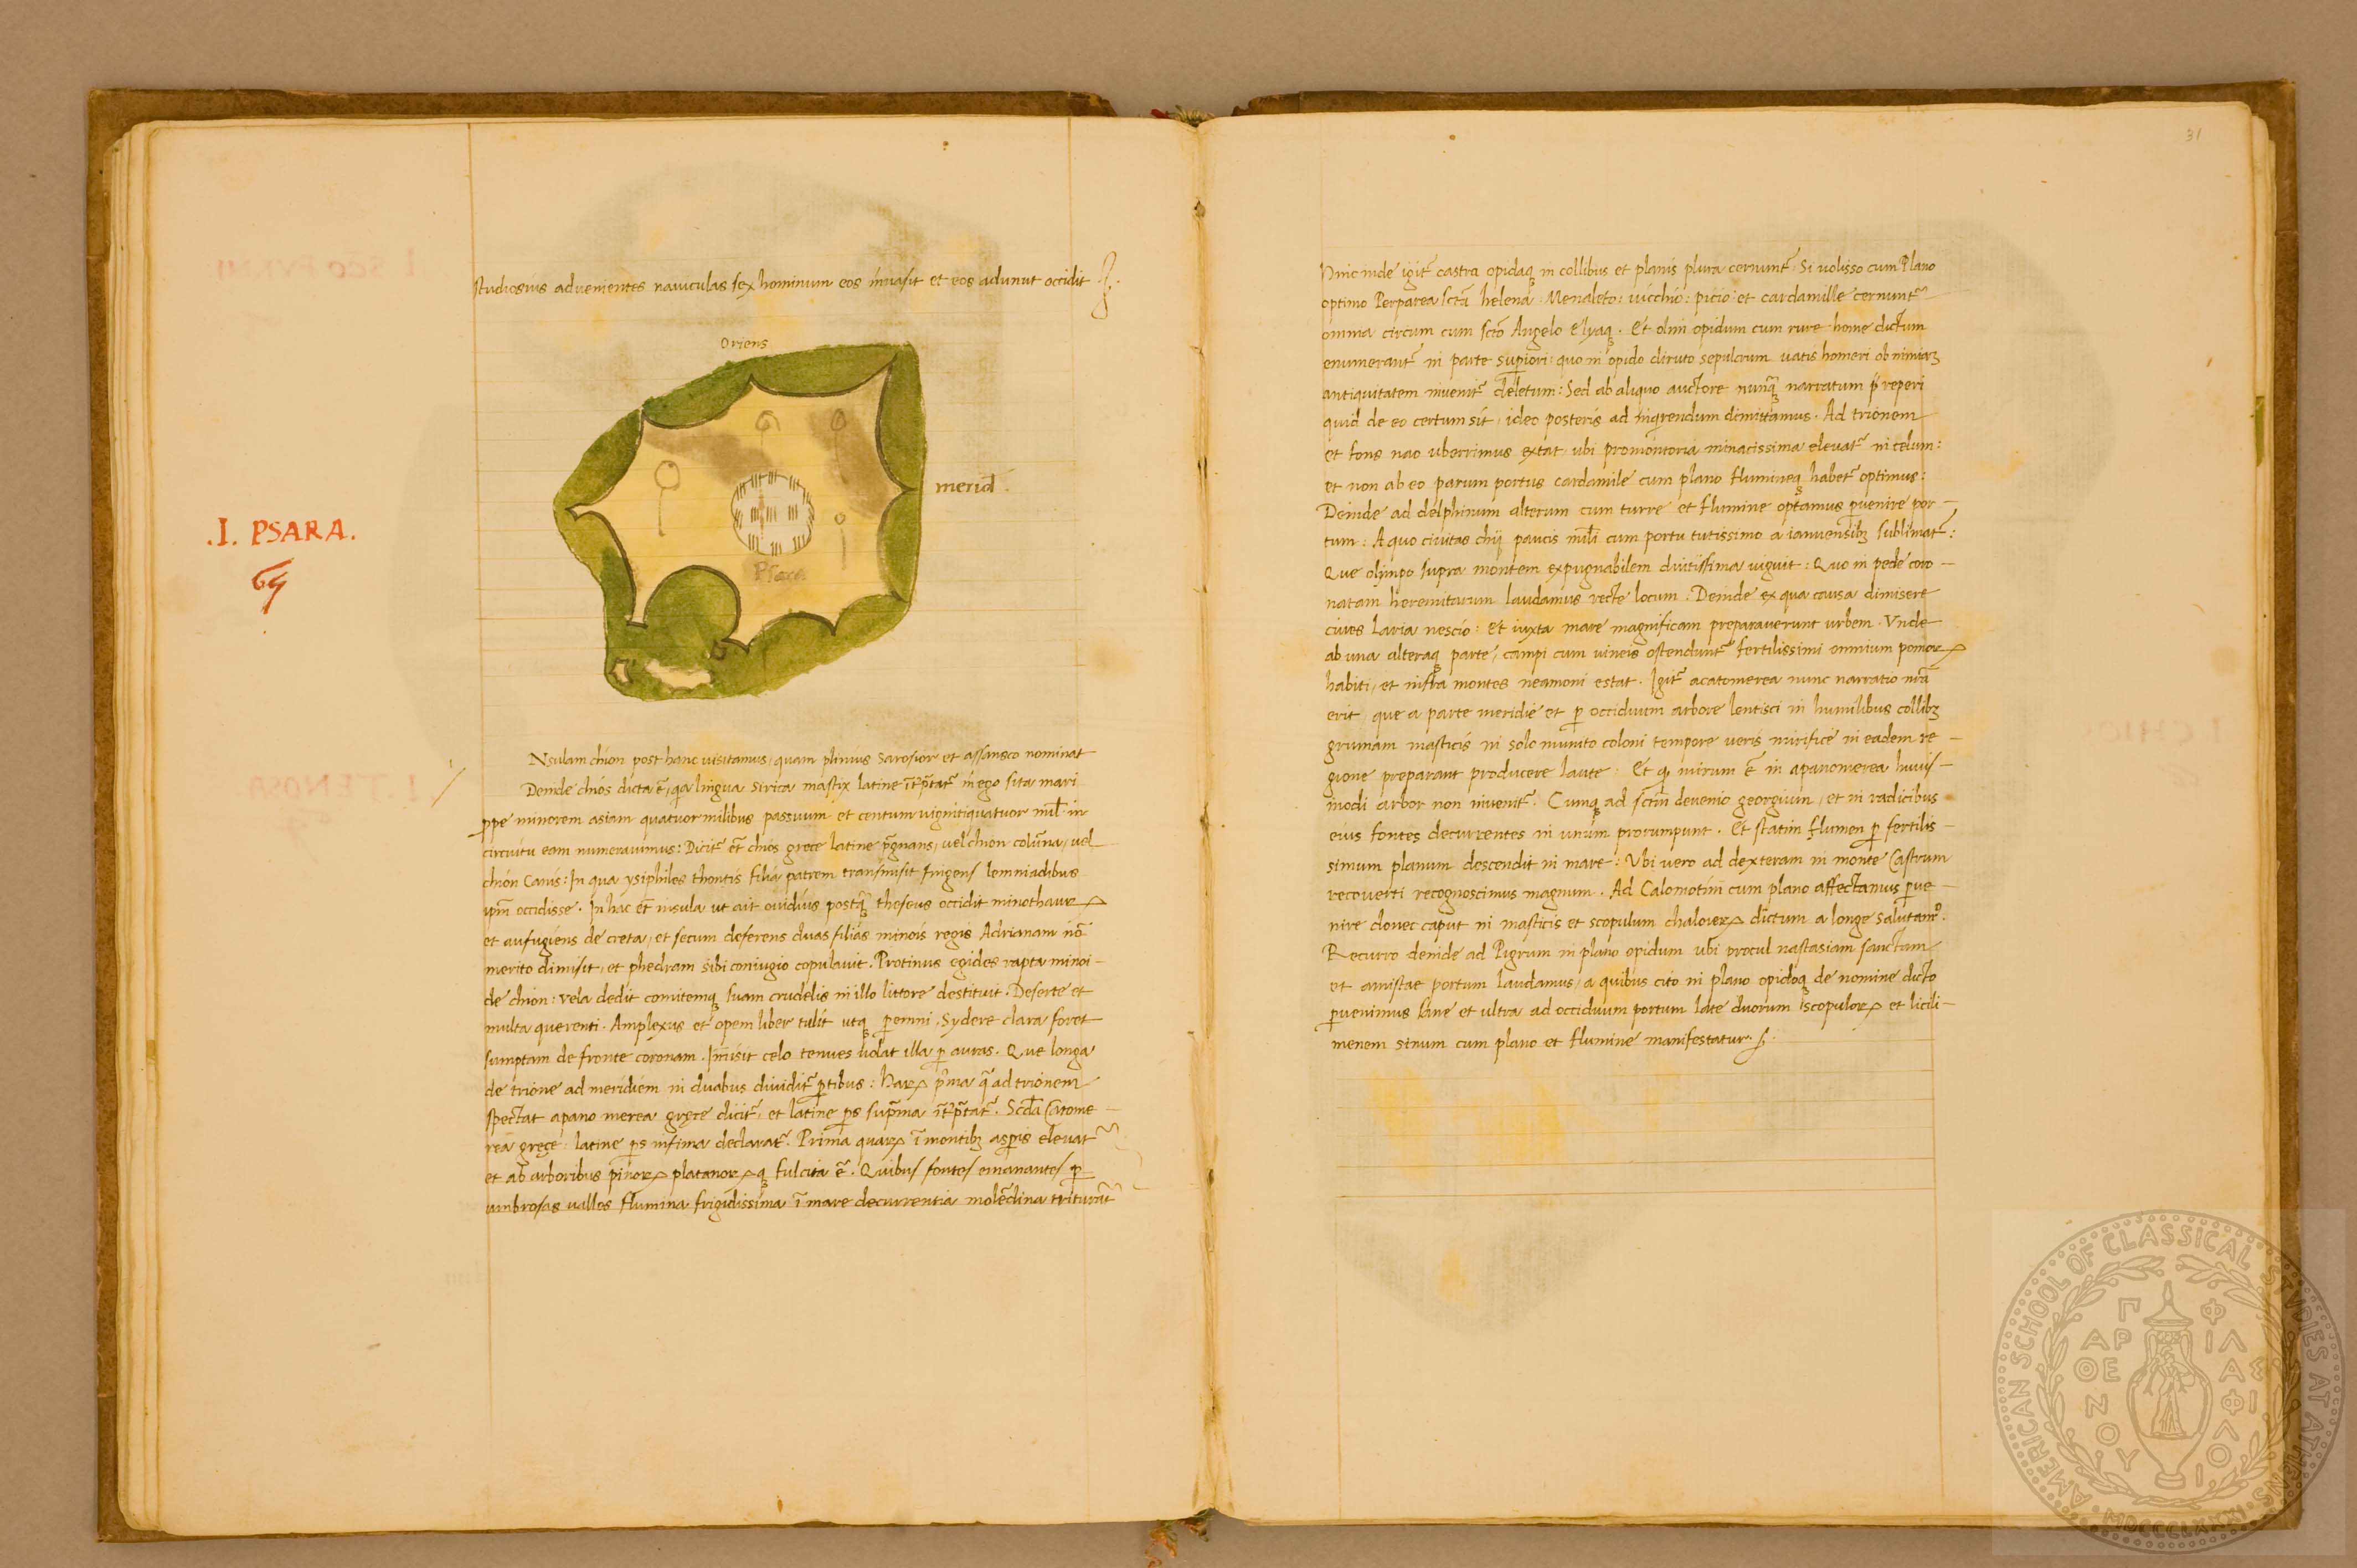 studiosius advenientes naviculas sex hominum eos invasit et eos adunut occidit
Oriens
merid.
Psara
.I. PSARA.
Nsulam chion post hanc visitamus, quam plinius sarosior et assansco nominat
Deinde chios dicta ē, qa lingua sirica mastix latine
sita mari
ppe minorem asiam quatuor milibus passuum et centum vigintiquatuor mil in
circuitu eam numeravimus: Dicit et chios grece latine pgnans, vel chion coluna, vel
chion Canis: In qua ysiphiles thontis filia patrem transmisit fingens lemniadibus
ipm occidisse. In hac et insula ut ait ovidius postq theseus occidit minothaur
et aufugiens de creta, et secum deferens duas filias minois regis Adrianam nō
merito dimisit, et phedram sibi coniugio copulavit. Protinus egides rapta minoi-
de chion: vela dedit comitemq suam crudelis in illo littore destituit. Deserte et
multa querenti. Amplexus et opem liber tulit utq penni. Sydere clara foret
sumptam de fronte coronam. Imisit celo tenues volat illa p auras. Que longa
de trione ad meridiem in duabus dividit ptibus: Har pma q ad trionem
spectat apano merea grece dicit, et latine ps supma
Scda Catome-
rea grece: latine ps infima declarat. Prima quar ī montib aspis elevat
et ab arboribus pinor platanorq fulcita ē. Quibus fontes emanantes p
umbrosas valles flumina frigidissima ī mare decurrentia molēdina triturāt
31
Hinc inde igit castra opidaq in collibus et planis plura cernunt. Si volisso cum Plano
optimo Perparea sctā helenā: Menaleto: vicchio: picio: et cardamille cernunt
omnia circum cum scto Angelo Elyaq. Et olim opidum cum rure home dictum
enumerant in parte supiori: quo in opido diruto sepulcrum vatis homeri ob nimiam
antiquitatem invenit deletum: Sed ab aliquo auctore nunq narratum reperi
quid de eo certum sit, ideo posteris ad inqrendum dimittamus. Ad trionem
et fons nao uberrimus extat, ubi promontoria minacissima elevat in celum:
et non ab eo parum portus cardamile cum plano flumineq habet optimus:
Deinde ad delphinum alterum cum turre et flumine optamus pvenire por-
tum: A quo civitas chij paucis mili cum portu tutissimo a ianuensib sublimat:
Que olimpo supra montem expugnabilem divitissima viguit: Quo in pede coro-
natam heremitarum laudamus recte locum. Deinde ex qua causa dimisere
cives Laria nescio: et iuxta mare magnificam preparaverunt urbem. Unde
ab una alteraq parte, campi cum vineis ostendunt fertilissimi omnium pomor
habiti, et infra montes neamoni estat. Igit acatomerea nunc narratio nra
erit, que a parte meridie et p occiduum arbore lentisci in humilibus collib
grumam masticis in solo munito coloni tempore veris mirifice in eadem re-
gione preparant producere laute: Et q mirum ē in apanomerea huius-
modi arbor non invenit. Cumq ad sctm devenio georgium, et in radicibus
eius fontes decurrentes in unum prorumpunt. Et statim flumen p fertilis-
simum planum descendit in mare: Ubi vero ad dexteram in monte Castrum
recoverti recognoscimus magnum. Ad Calomotini cum plano affectamus pve-
nire donec caput in masticis et scopulum chaloier dictum a longe salutam.
Recurro deinde ad Pigrum in plano opidum ubi procul nastasiam sanctam
et amistae portum laudamus, a quibus cito in plano opidoq de nomine dicto
pvenimus sane et ultra ad occiduum portum late duorum scopulor et licili-
menem sinum cum plano et flumine manifestatur.
AMERICAN SCHOOL OF CLASSICAL STUDIES AT ATHENS
MDCCCLXXXI